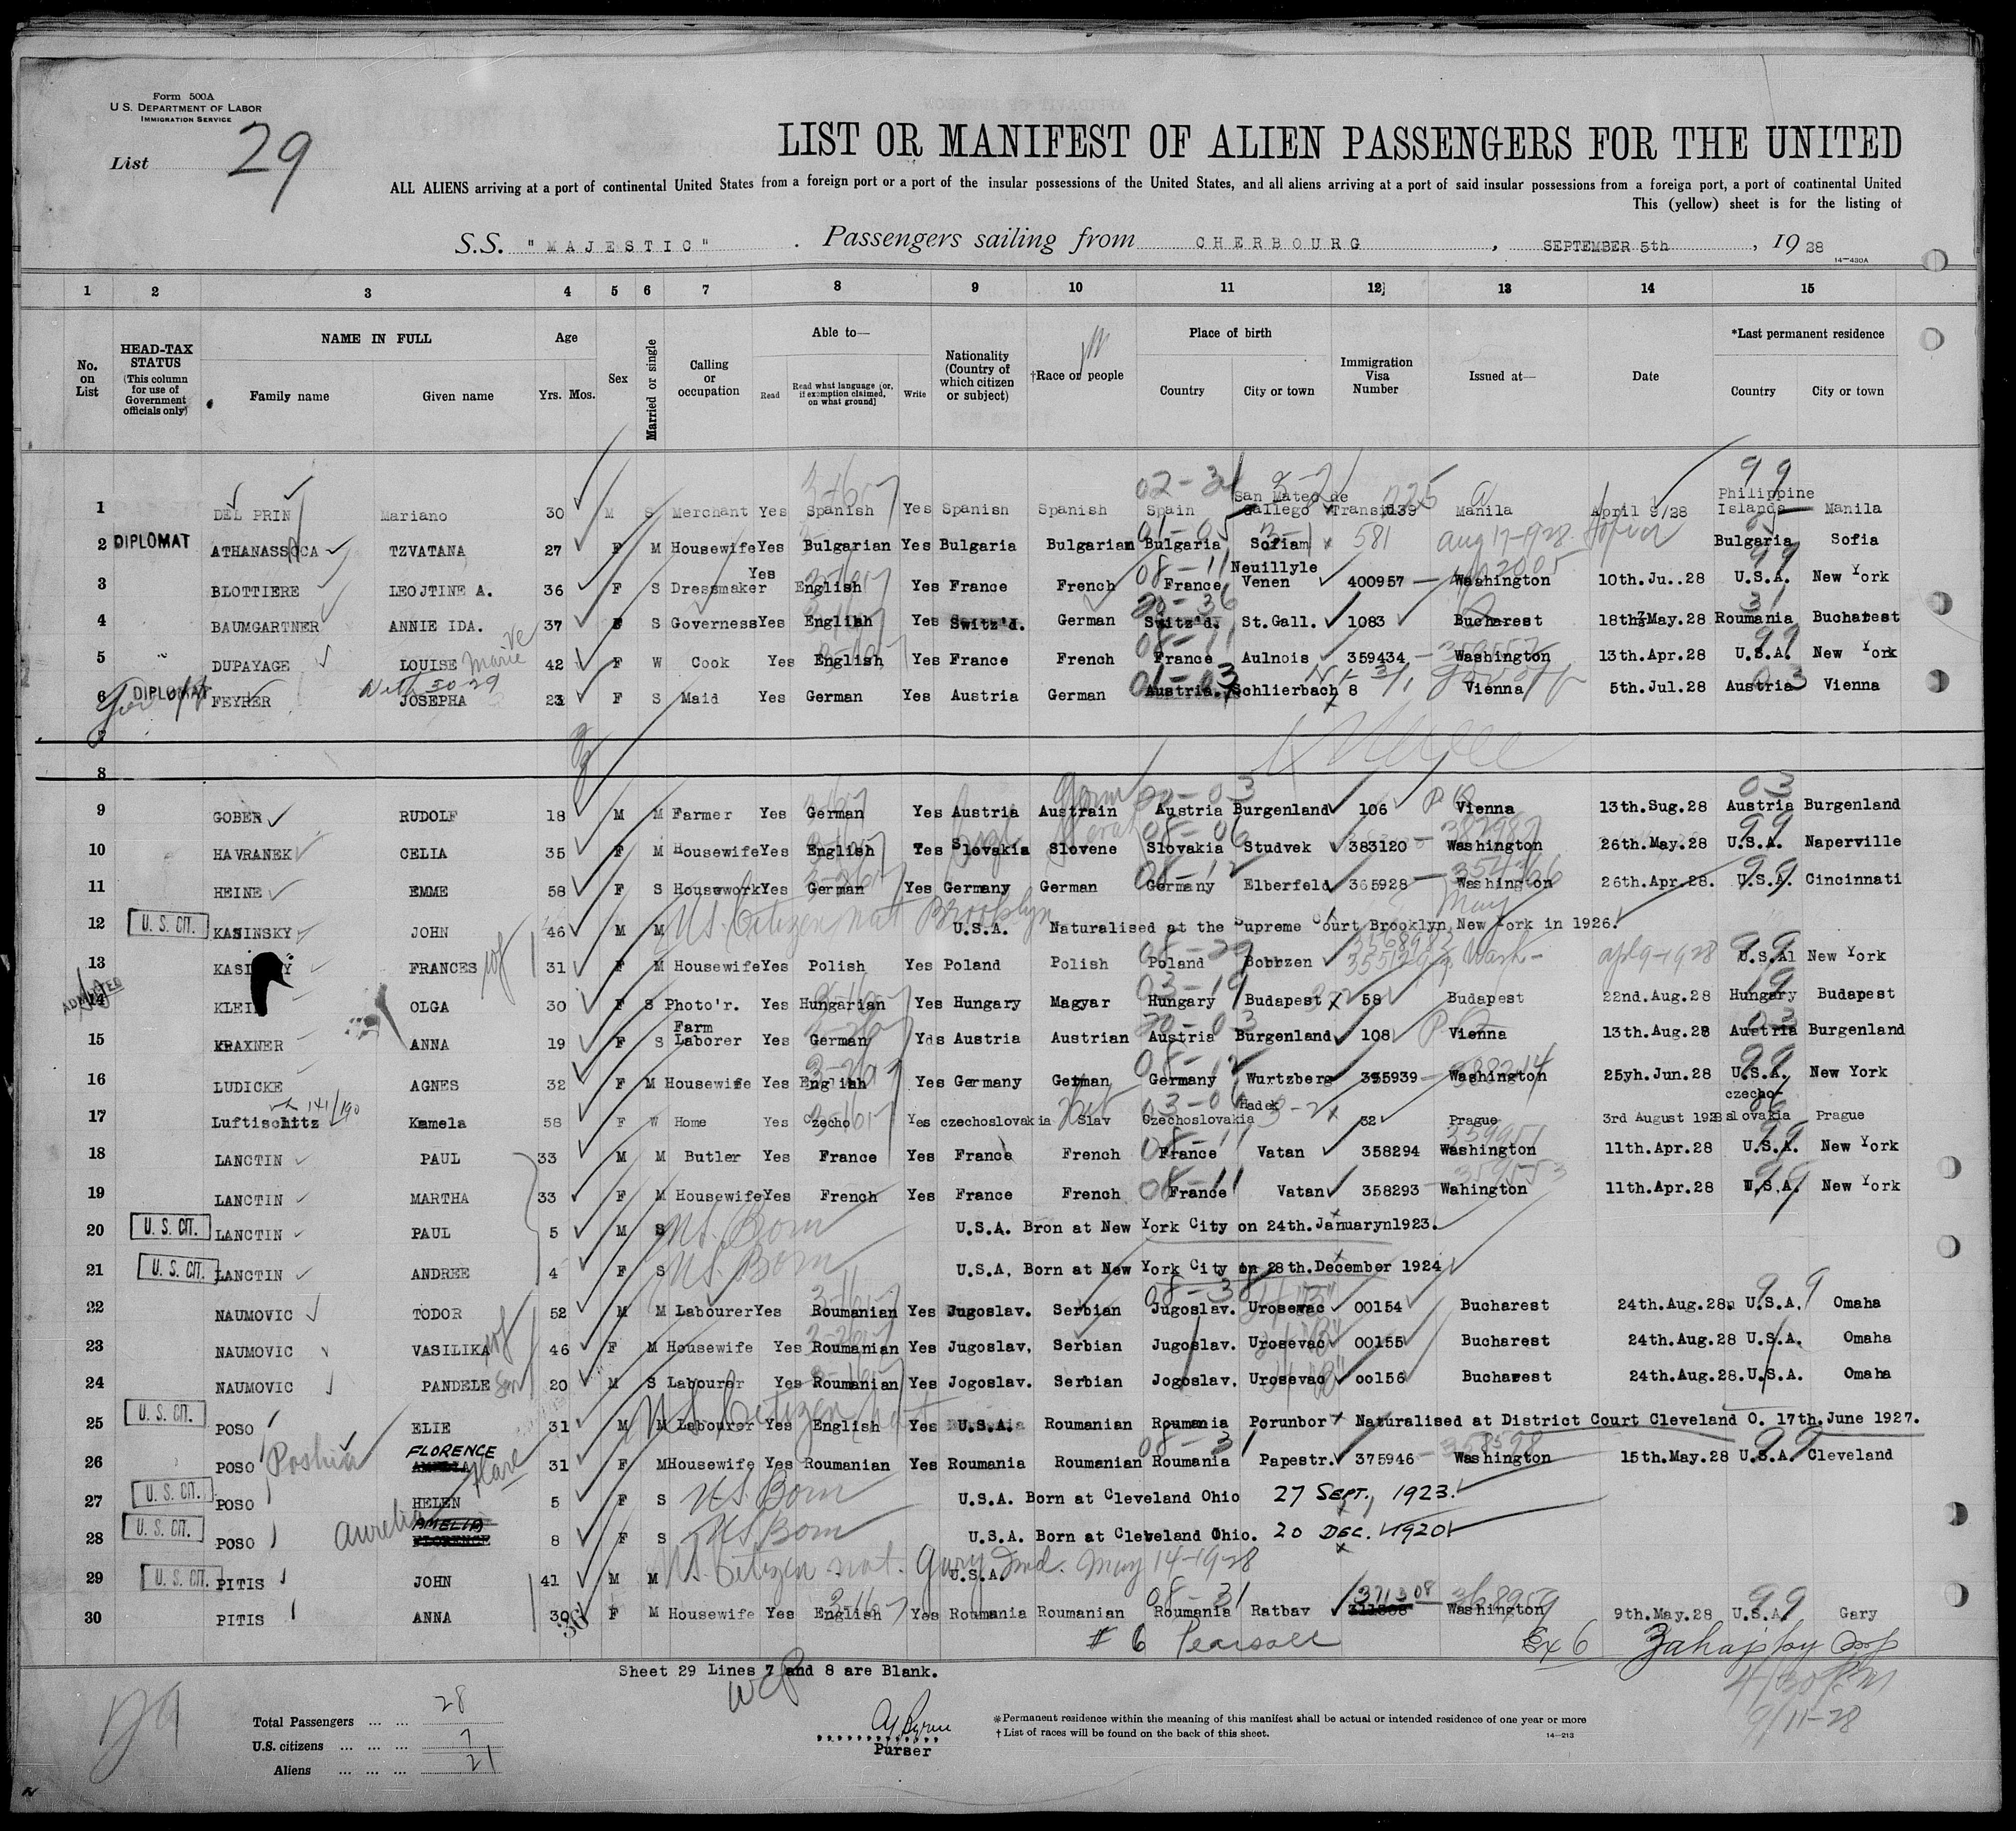 Form 500A
U.S. DEPARTMENT OF LABOR
IMMIGRATION SERVICE
List 29
LIST OR MANIFEST OF ALIEN PASSENGERS FOR THE UNITED
ALL ALIENS arriving at a port of continental United States from a foreign port or a port of the insular possessions of the United States, and all aliens arriving at a port of said insular possessions from a foreign port, a port of continental United
This (yellow) sheet is for the listing of
S.S. "MAJESTIC" . Passengers sailing from CHERBOURG , SEPTEMBER 5th , 19 28
14-430A
1 2 3 4 5 6 7 8 9 10 11 12 13 14 15
No. on List
HEAD-TAX STATUS (This column for use of Government officials only)
NAME IN FULL Family name Given name
Age Yrs. Mos.
Sex
Married or single
Calling or occupation
Able to— Read Read what language [or, if exemption claimed, on what ground] Write
Nationality (Country of which citizen or subject)
†Race or people
Place of birth Country City or town
Immigration Visa Number
Issued at—
Date
*Last permanent residence Country City or town
1 DEL PRIN Mariano 30 M S Merchant Yes Spanish Yes Spanish Spanish Spain San Mateo de Gallego Manila April 9/28 Philippine Islands Manila
2 DIPLOMAT ATHANASSOCA TZVATANA 27 F M Housewife Yes Bulgarian Yes Bulgaria Bulgarian Bulgaria Sofia 581 Aug 17-1928 Bulgaria Sofia
3 BLOTTIERE LEOJTINE A. 36 F S Dressmaker Yes English Yes France French France Neuillyle Venen 400957 Washington 10th.Ju..28 U.S.A. New York
4 BAUMGARTNER ANNIE IDA. 37 F S Governess Yes English Yes Switz'd. German Switz'd. St.Gall. 1083 Bucharest 18th May.28 Roumania Bucharest
5 DUPAYAGE LOUISE Marie 42 F W Cook Yes English Yes France French France Aulnois 359434 Washington 13th.Apr.28 U.S.A. New York
6 DIPLOMAT FEYRER JOSEPHA 23 F S Maid Yes German Yes Austria German Austria. Schlierbach 8 Vienna 5th.Jul.28 Austria Vienna
7
8
9 GOBER RUDOLF 18 M M Farmer Yes German Yes Austria Austrain Austria Burgenland 106 Vienna 13th.Sug.28 Austria Burgenland
10 HAVRANEK CELIA 35 F M Housewife Yes English Yes Slovakia Slovene Slovakia Studvek 383120 Washington 26th.May.28 U.S.A. Naperville
11 HEINE EMME 58 F S Housework Yes German Yes Germany German Germany Elberfeld 365928 Washington 26th.Apr.28. U.S.A. Cincinnati
12 U.S. CIT. KASINSKY JOHN 46 M M US. Citizen nat Brooklyn U.S.A. Naturalised at the Supreme Court Brooklyn New York in 1926.
13 FRANCES wf 31 F M Housewife Yes Polish Yes Poland Polish Poland Wash- U.S.A. New York
14 ADMITTED OLGA 30 F S Photo'r. Yes Hungarian Yes Hungary Magyar Hungary Budapest 58 Budapest 22nd.Aug.28 Hungary Budapest
15 KRAXNER ANNA 19 F S Farm Laborer Yes German Yds Austria Austrian Austria Burgenland 108 Vienna 13th.Aug.28 Austria Burgenland
16 LUDICKE AGNES 32 F M Housewife Yes English Yes Germany German Germany Wurtzberg 395939 Washington 25yh.Jun.28 U.S.A. New York
17 Luftischitz Kamela 58 F W Home Yes Czecho Yes czechoslovakia Slav Czechoslovakia Hadek 52 Prague 3rd August 1928 czecho-slovakia Prague
18 LANCTIN PAUL 33 M M Butler Yes France Yes France French France Vatan 358294 Washington 11th.Apr.28 U.S.A. New York
19 LANCTIN MARTHA 33 F M Housewife Yes French Yes France French France Vatan 358293 Wahington 11th.Apr.28 U.S.A. New York
20 U.S. CIT. LANCTIN PAUL 5 M S US. Born U.S.A. Bron at New York City on 24th.Januaryn1923.
21 U.S. CIT. LANCTIN ANDREE 4 F S US. Born U.S.A. Born at New York City on 28th.December 1924
22 NAUMOVIC TODOR 52 M M Labourer Yes Roumanian Yes Jugoslav. Serbian Jugoslav. Urosevac 00154 Bucharest 24th.Aug.28 U.S.A. Omaha
23 NAUMOVIC VASILIKA wf 46 F M Housewife Yes Roumanian Yes Jugoslav. Serbian Jugoslav. Urosevac 00155 Bucharest 24th.Aug.28 U.S.A. Omaha
24 NAUMOVIC PANDELE Son 20 M S Labourer Yes Roumanian Yes Jogoslav. Serbian Jogoslav. Urosevac 00156 Bucharest 24th.Aug.28. U.S.A. Omaha
25 U.S. CIT. POSO ELIE 31 M M Labourer Yes English Yes U.S.A. Roumanian Roumania Porunbor Naturalised at District Court Cleveland O. 17th.June 1927.
26 POSO FLORENCE 31 F M Housewife Yes Roumanian Yes Roumania Roumanian Roumania Papestr. 375946 Washington 15th.May.28 U.S.A. Cleveland
27 U.S. CIT. POSO HELEN 5 F S US. Born U.S.A. Born at Cleveland Ohio 27 SEPT., 1923.
28 U.S. CIT. POSO Aurelia AMELIA 8 F S US. Born U.S.A. Born at Cleveland Ohio. 20 DEC. 1920
29 U.S. CIT. PITIS JOHN 41 M M US. Citizen nat. Gary Ind. May 14-1928 U.S.A.
30 PITIS ANNA 30 F M Housewife Yes English Yes Roumania Roumanian Roumania Ratbav 371308 Washington 368959 9th.May.28 U.S.A. Gary
# 6 Pearsall Ex 6
Sheet 29 Lines 7 and 8 are Blank.
Total Passengers ... ... 28
U.S. citizens ... ... ... 7
Aliens ... ... ... 21
Purser
*Permanent residence within the meaning of this manifest shall be actual or intended residence of one year or more
†List of races will be found on the back of this sheet.
14-213
4/30 PM
9/11-28